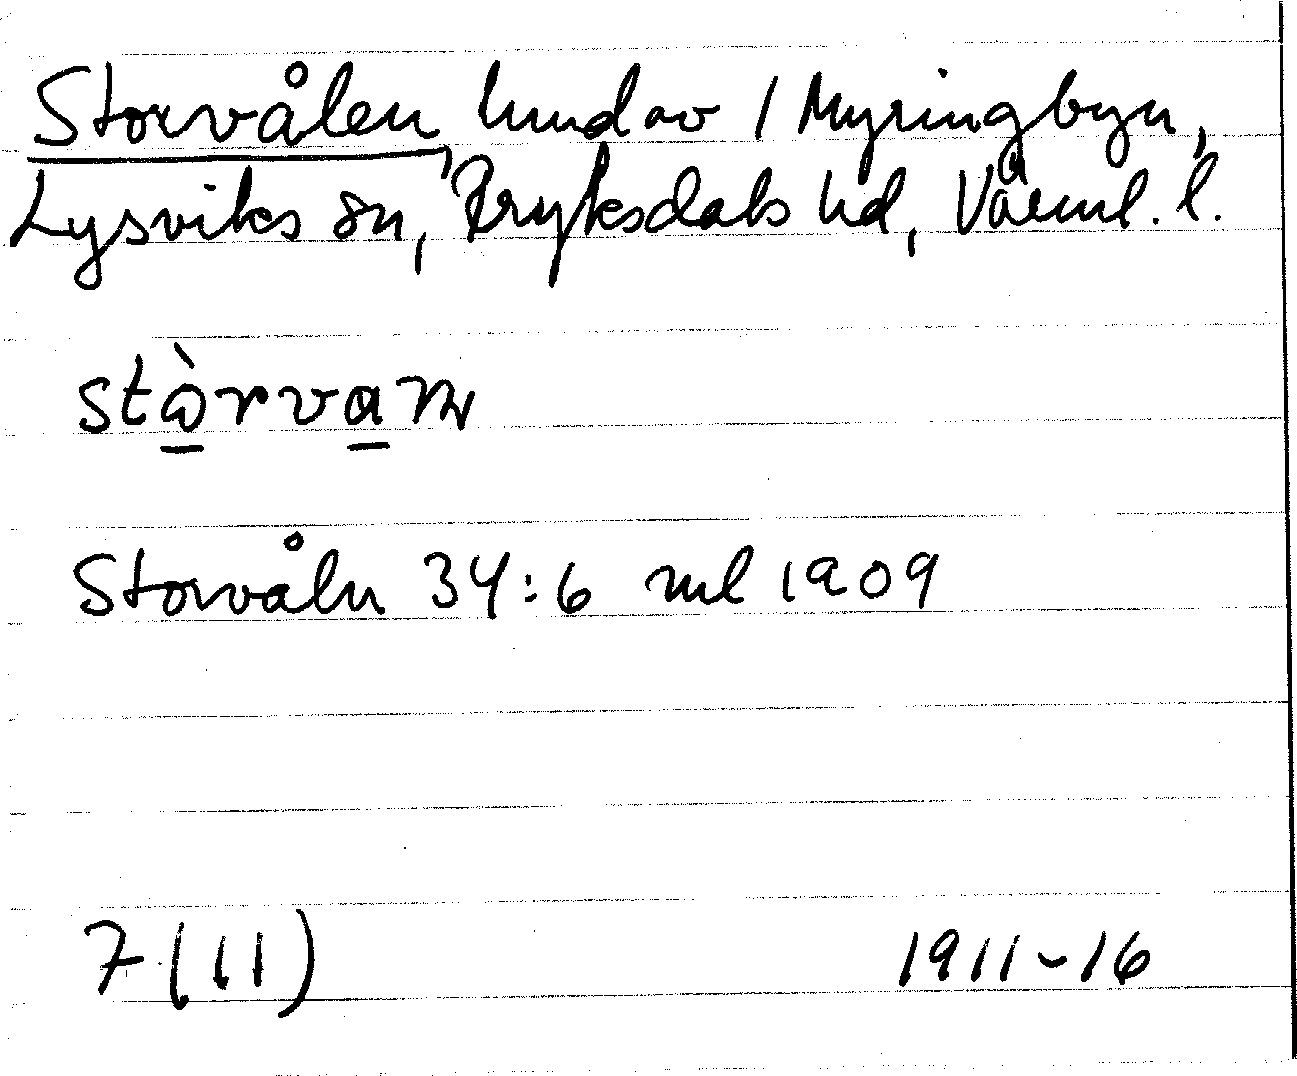 Storvålen, hmd av 1 Myringbyn,
Lysviks sn, Fryksdals hd, Värml. l.
stòrvaṉ
Storvåln 34:6 ml 1909
7 (11) 1911-16